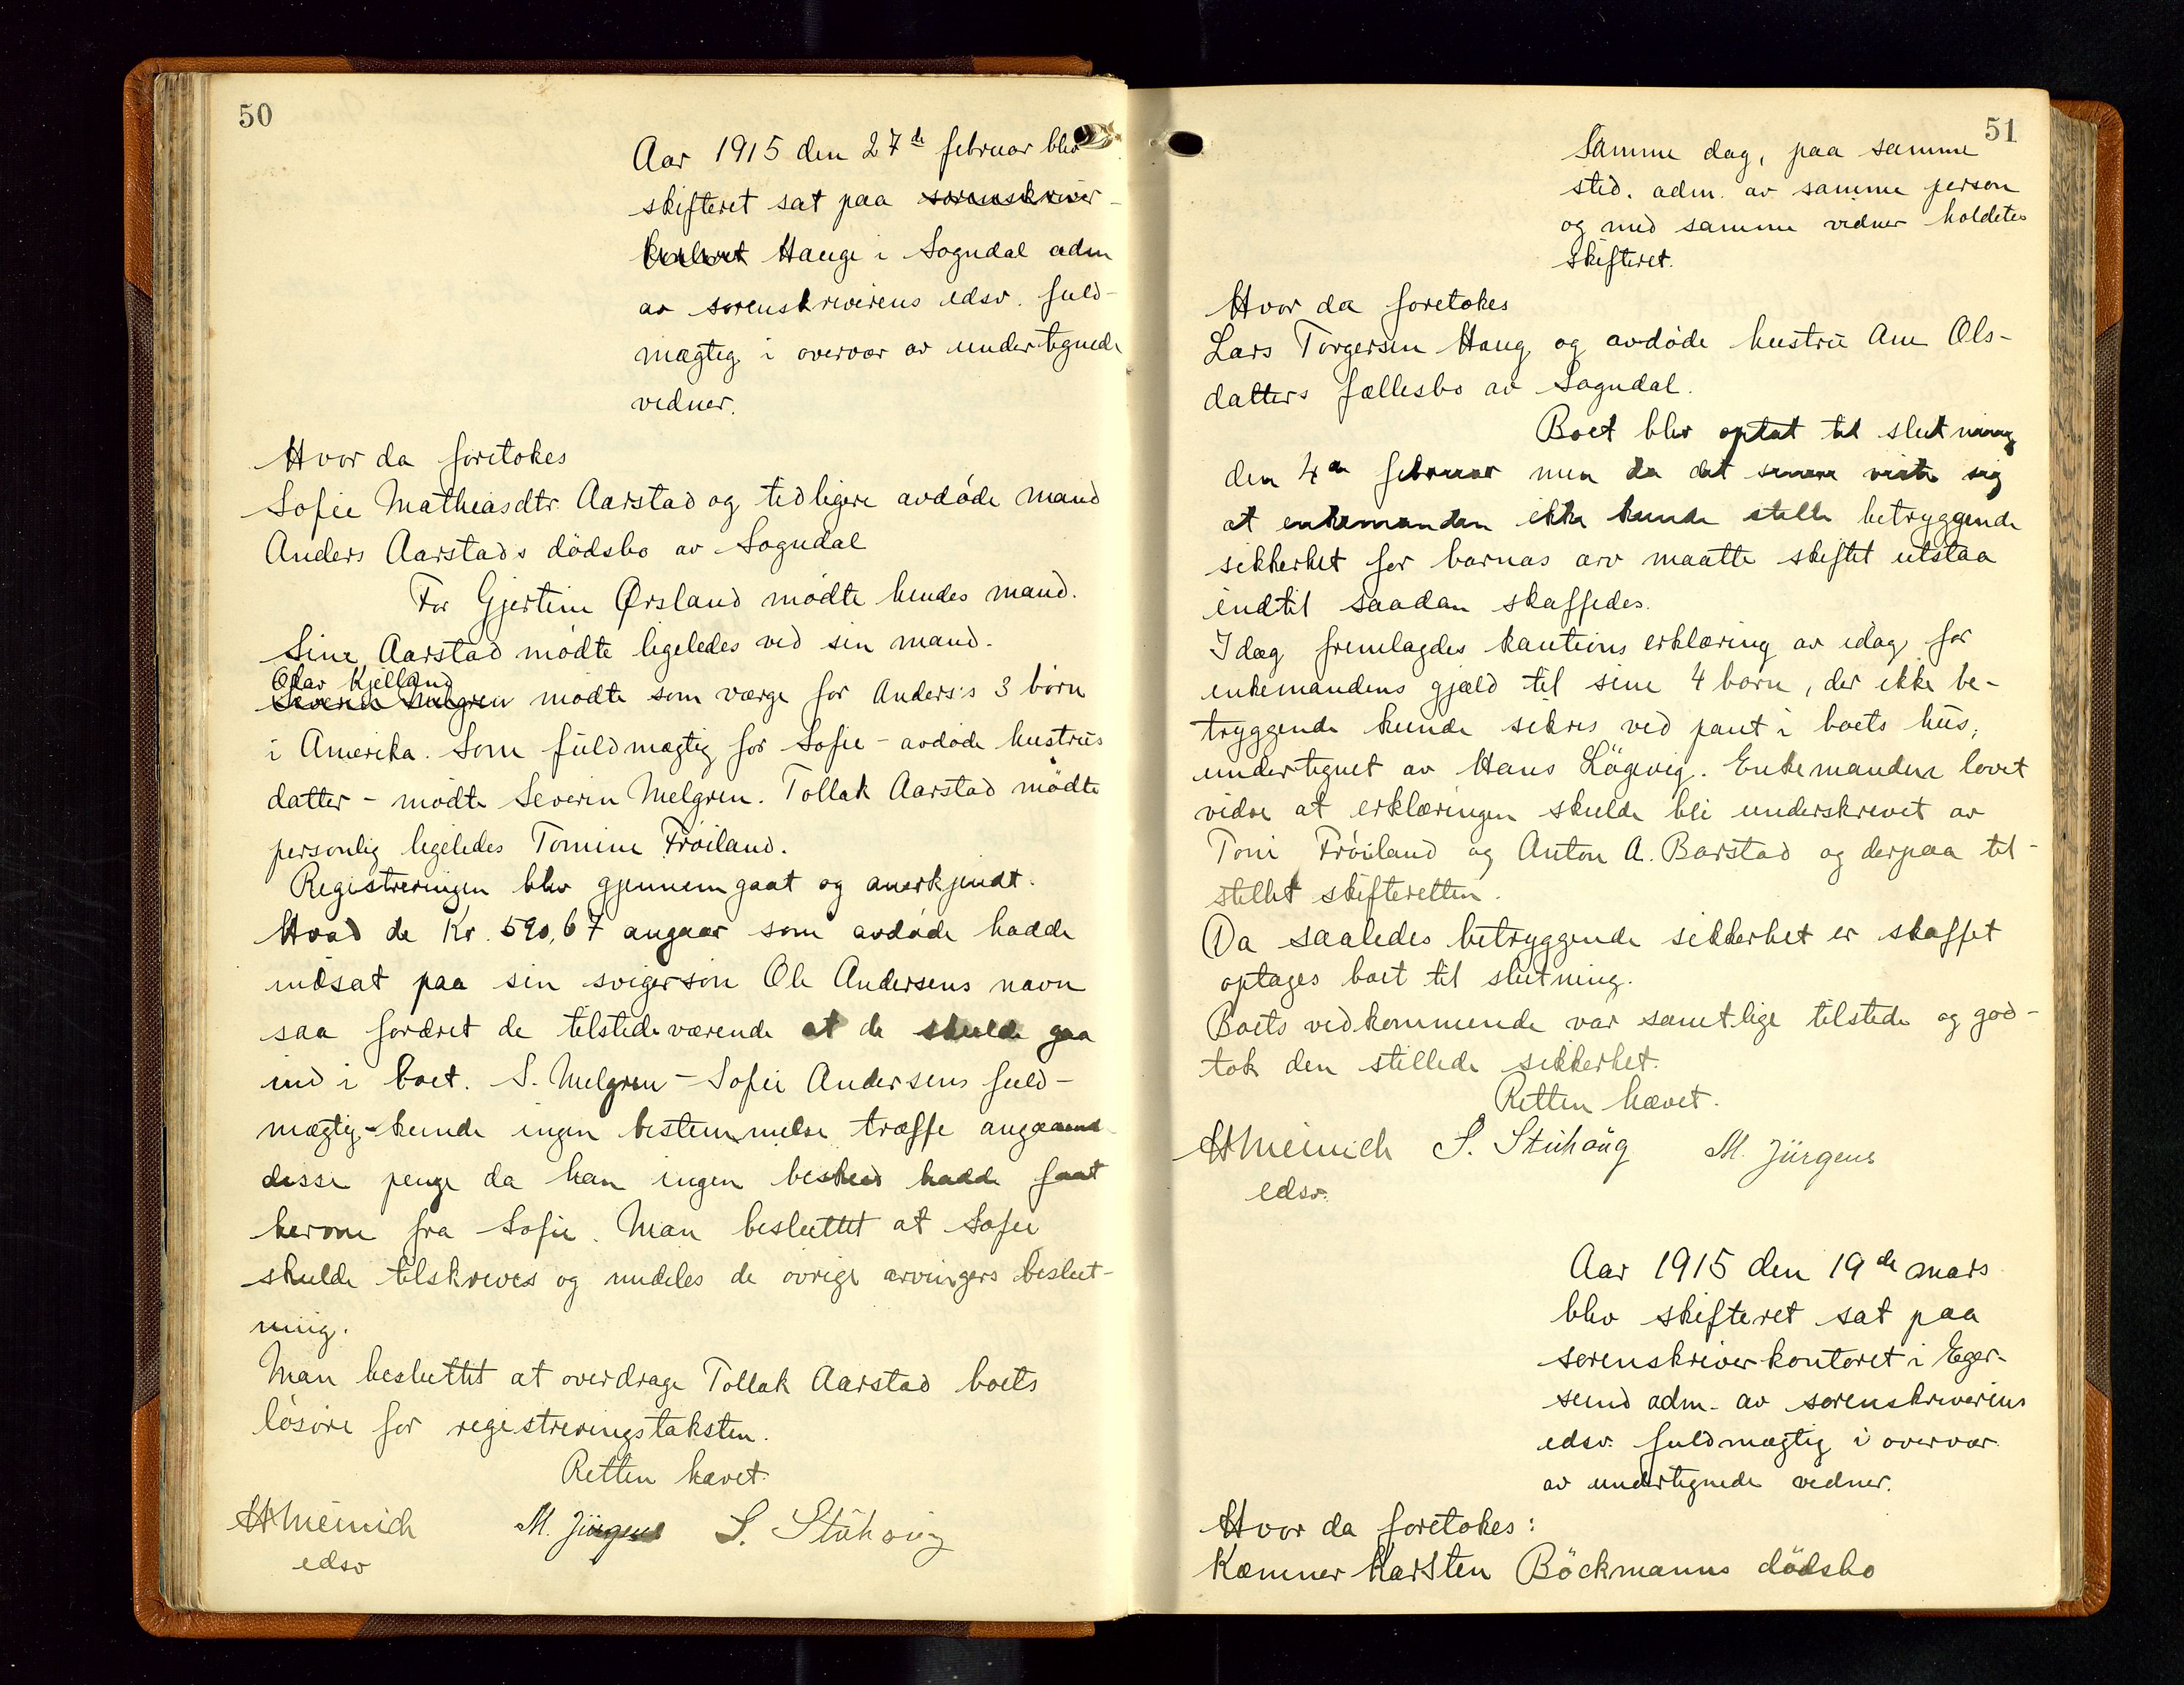 50
Aar 1915 den 27de februar blev
skifteret sat paa sorenskriver-
kontoret Hauge i Sogndal adm
av sorenskriverens edsv. fuld-
mægtig i overvær av undertegnede
vidner.
Hvor da foretokes
Sofie Mathiasdtr. Aarstad og tidligere avdøde mand
Anders Aarstads dödsbo av Sogndal
For Gjertine Ørsland mødte hendes mand.
Sine Aarstad mødte ligeledes ved sin mand.
Olav Kjelland
Severin Melgren mødte som værge for Anders's 3 børn
i Amerika. Som fuldmægtig for Sofie - avdøde hustrus
datter - mødte Severin Melgren. Tollak Aarstad mødte
personlig ligeledes Tomine Frøiland.
Registreringen blev gjennemgaat og anerkjendt.
Hvad de Kr. 590,67 angaar som avdøde hadde
indsat paa sin svigersøn Ole Andersens navn
saa fordret de tilstedeværende at de skulde gaa
ind i boet. S. Melgren - Sofie Andersens fuld-
mægtig - kunde ingen bestemmelse træffe angaaende
disse penge da han ingen besked hadde faat
herom fra Sofie. Man besluttet at Sofie
skulde tilskrives og meddeles de øvrige arvingers beslut-
ning.
Man besluttet at overdrage Tollak Aarstad boets
løsøre for registreringstaksten.
Retten hævet.
H Meinich M. Jürgens S. Stuhaug
edsv
51
Samme dag, paa samme
sted. adm. av samme person
og med samme vidner holdtes
skifteret.
Hvor da foretokes
Lars Torgersen Haug og avdøde hustru Ane Ols-
datters fællesbo av Sogndal.
Boet blev optat til slutning
den 4de februar men da det senere viste sig
at enkemanden ikke kunde stille betryggende
sikkerhet for barnas arv maatte skiftet utstaa
indtil saadan skaffedes.
Idag fremlagdes kautions erklæring av idag for
enkemandens gjæld til sine 4 børn, der ikke be-
tryggende kunde sikres ved pant i boets hus,
undertegnet av Hans Lögevig. Enkemanden lovet
videre at erklæringen skulde bli underskrevet av
Toni Frøiland og Anton A. Barstad og derpaa til-
stillet skifteretten.
Da saaledes betryggende sikkerhet er skaffet
optages boet til slutning.
Boets vedkommende var samtlige tilstede og god-
tok den stillede sikkerhet.
Retten hævet.
H Meinich S. Stuhaug M. Jürgens
edsv.
Aar 1915 den 19de mars
blev skifteret sat paa
sorenskriverkontoret i Eger-
sund adm. av sorenskriverens
edsv. fuldmægtig i overvær
av undertegnede vidner.
Hvor da foretokes:
Kæmner Karsten Böckmanns dödsbo